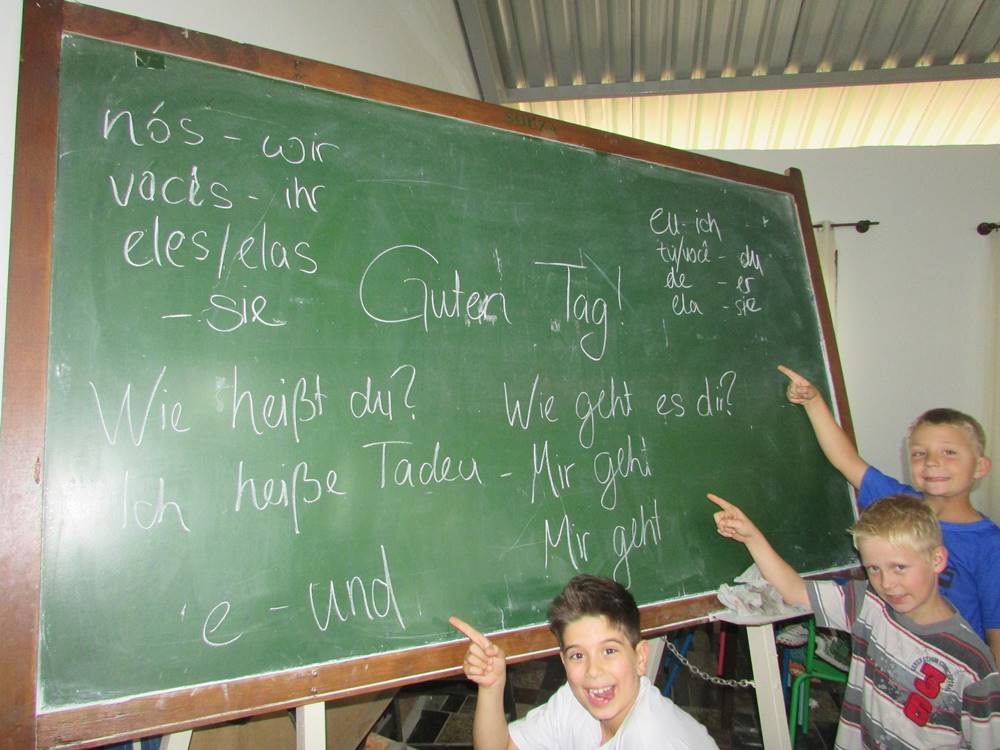 nós - wir
vocês - ihr
eles/elas
- sie
eu - ich
tu/você - du
ele - er
ela - sie
Guten Tag!
Wie heißt du?
Wie geht es dir?
Ich heiße Tadeu
- Mir geht
Mir geht
e - und
36